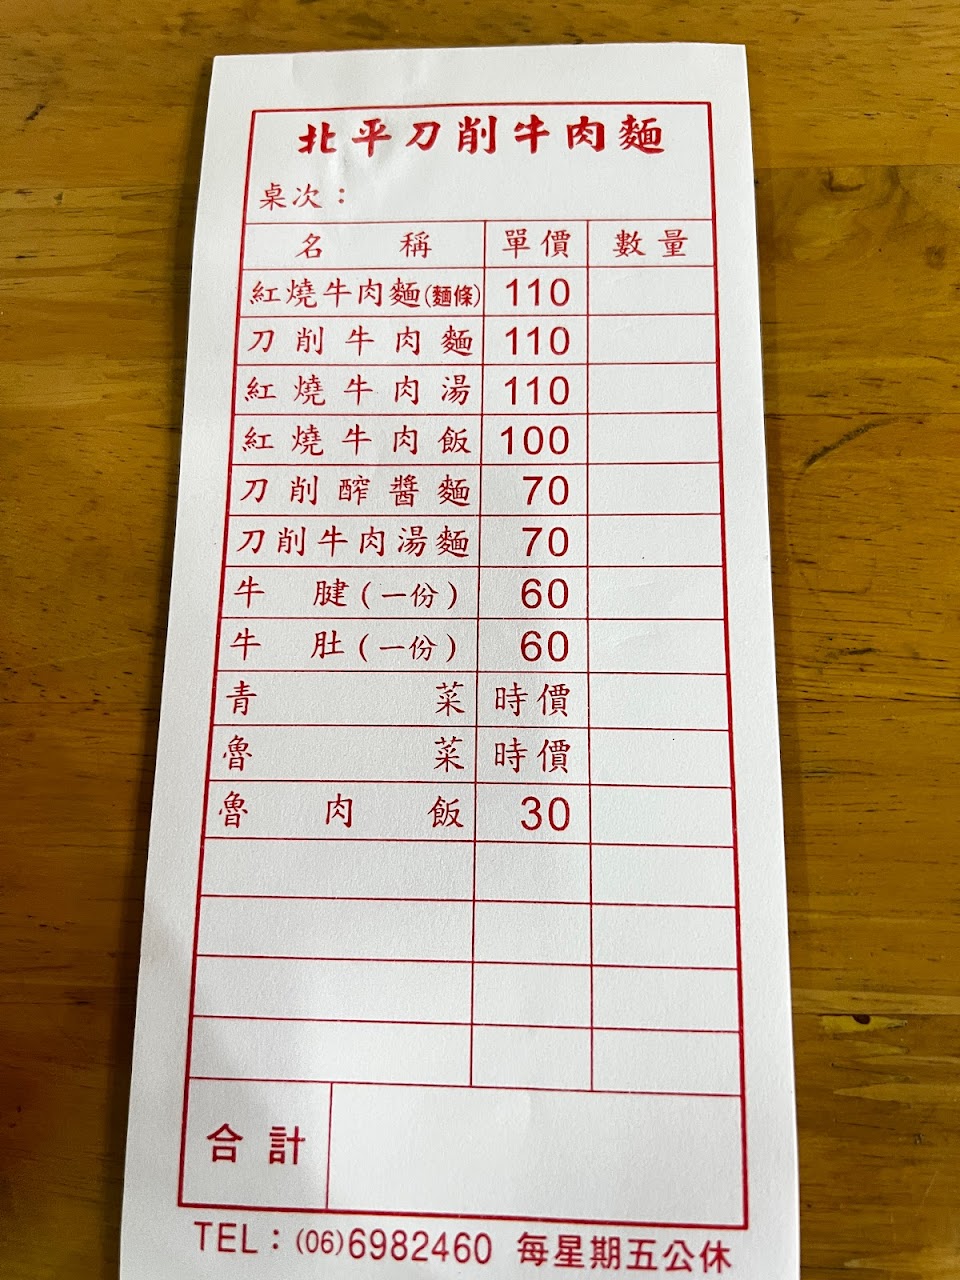 北平刀削牛肉麵
桌次：
名稱 單價 數量
紅燒牛肉麵(麵條) 110
刀削牛肉麵 110
紅燒牛肉湯 110
紅燒牛肉飯 100
刀削醡醬麵 70
刀削牛肉湯麵 70
牛腱(一份) 60
牛肚(一份) 60
青菜 時價
魯菜 時價
魯肉飯 30
合計
TEL：(06)6982460 每星期五公休